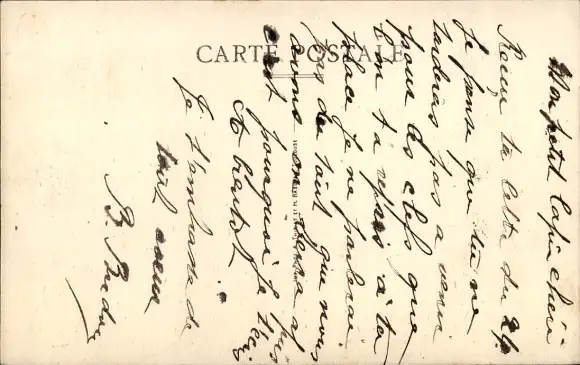 CARTE POSTALE
Mon petit lapin cheri
Reçu ta lettre du 24
Je pense que tu ne
tarderas pas a venir
pour les clefs que
l'on t'a repris à ta
place je ne parlerai
pas de tout que nous
avons
c'est pourquoi je
A bientôt
Je t'embrasse de
tout coeur
B.